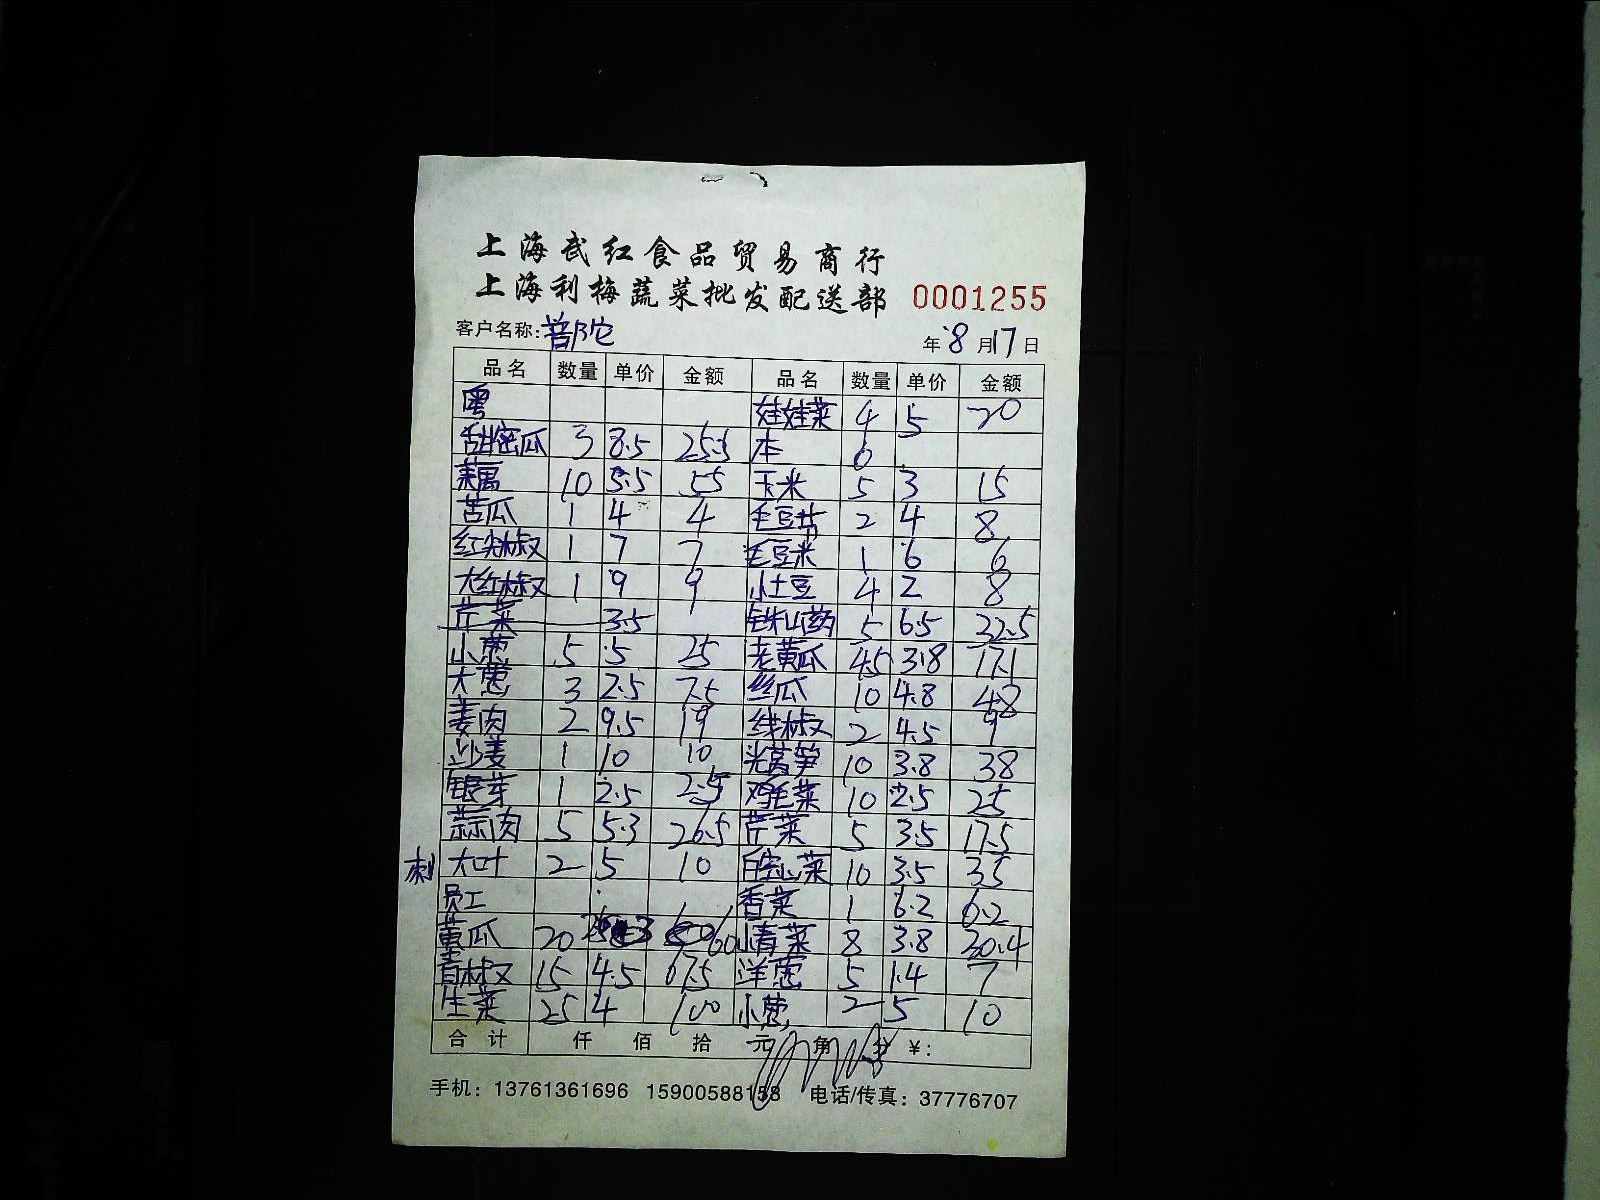 上海武红食品贸易商行
上海利梅蔬菜批发配送部 0001255
客户名称:普陀 年8月17日
品名 数量 单价 金额 品名 数量 单价 金额
粤 娃娃菜 4 5 20
甜密瓜 3 8.5 25.5 本 6
藕 10 5.5 55 玉米 5 3 15
苦瓜 1 4 4 毛豆节 2 4 8
红尖椒 1 7 7 毛豆米 1 6 6
大红椒 1 9 9 小土豆 4 2 8
芹菜 3.5 铁山药 5 6.5 32.5
小葱 5 5 25 老黄瓜 4.5 3.8 17.1
大葱 3 2.5 7.5 丝瓜 10 4.8 48
姜肉 2 9.5 19 线椒 2 4.5 9
沙姜 1 10 10 光莴笋 10 3.8 38
银芽 1 2.5 2.5 鸡毛菜 10 2.5 25
蒜肉 5 5.3 26.5 芹菜 5 3.5 17.5
刺 大叶 2 5 10 白空心菜 10 3.5 35
员工 香菜 1 6.2 6.2
黄瓜 20 3 60 小青菜 8 3.8 30.4
青椒 15 4.5 67.5 洋葱 5 1.4 7
生菜 25 4 100 小葱 2 5 10
合计 仟 佰 拾 元 角 分 ¥:
手机: 13761361696 15900588158 电话/传真: 37776707